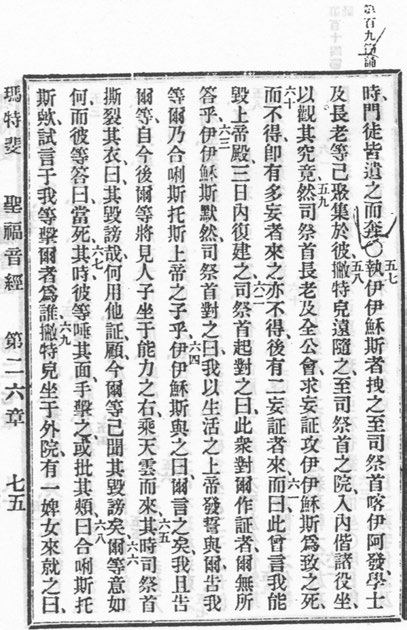 第百九誦
時門徒皆遺之而奔○五七執伊伊穌斯者拽之至司祭首喀伊阿發學士
及長老等已聚集於彼五八撇特兒遠隨之至司祭首之院入內偕諸役坐
以觀其究竟五九然司祭首長老及全公會求妄証攻伊伊穌斯爲致之死
六十而不得卽有多妄者來之亦不得後有二妄証者來六一而曰此曾言我能
毀上帝殿三日內復建之六二司祭首起對之曰此衆對爾作証者爾無所
答乎六三伊伊穌斯默然司祭首對之曰我以生活之上帝發誓與爾吿我
等爾乃合唎斯托斯上帝之子乎六四伊伊穌斯與之曰爾言之矣我且吿
爾等自今後爾等將見人子坐于能力之右乘天雲而來六五其時司祭首
撕裂其衣曰其毀謗哉何用他証顧今爾等已聞其毀謗矣六六爾等意如
何而彼等答曰當死六七其時彼等唾其面手擊之或批其頰六八曰合唎斯托
斯歟試言于我等擊爾者爲誰六九撇特兒坐于外院有一婢女來就之曰
瑪特斐 聖福音經 第二六章 七五